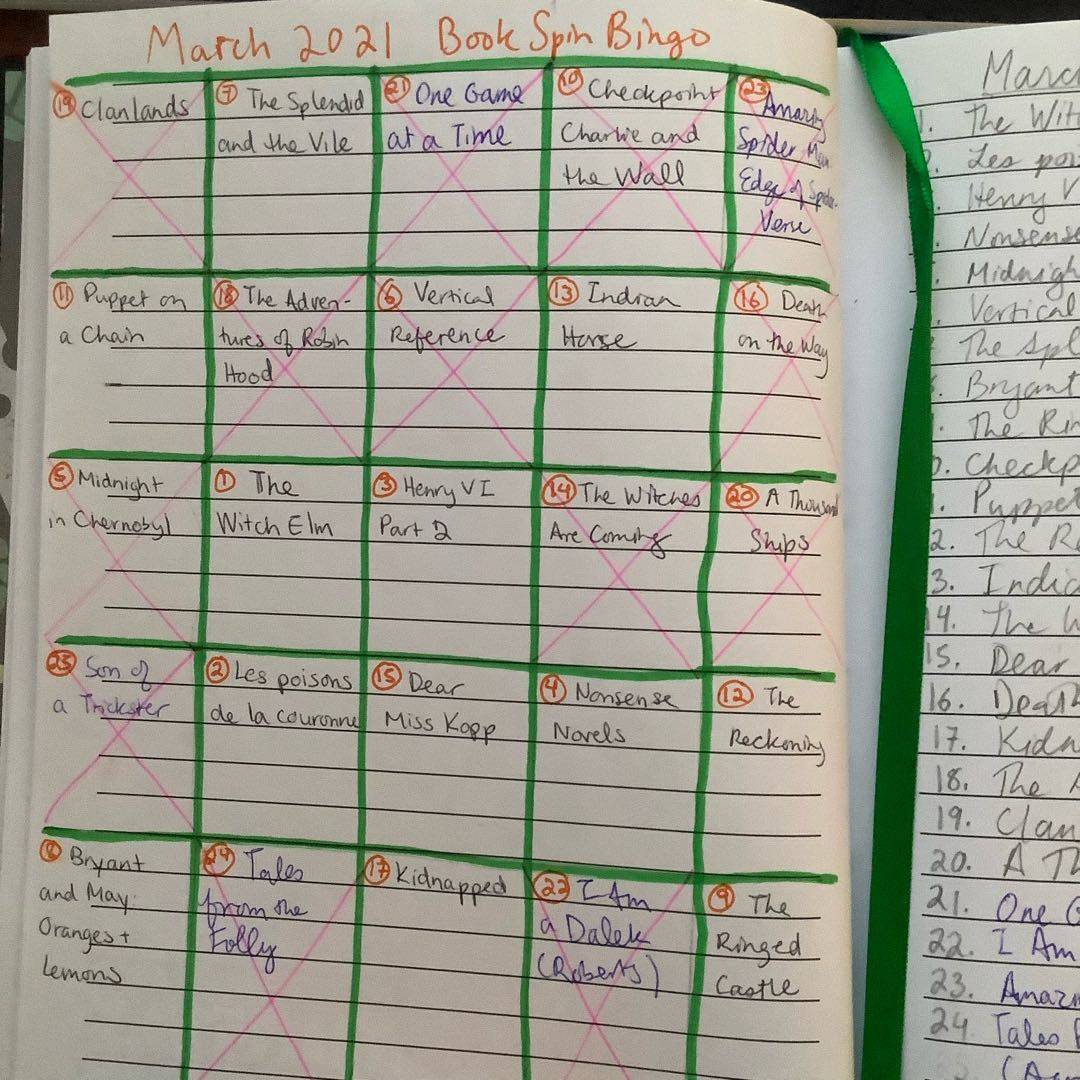 March 2021 Book Spin Bingo
19 Clanlands
7 The Splendid
and the Vile
21 One Game
at a Time
10 Checkpoint
Charlie and
the Wall
23 Amazing
Spider Man
Edge of Spider-
Verse
11 Puppet on
a Chain
18 The Adven-
tures of Robin
Hood
6 Vertical
Reference
13 Indian
Horse
16 Death
on the Way
5 Midnight
in Chernobyl
1 The
Witch Elm
3 Henry VI
Part 2
14 The Witches
Are Coming
20 A Thousand
Ships
25 Son of
a Trickster
2 Les poisons
de la couronne
15 Dear
Miss Kopp
4 Nonsense
Novels
12 The
Reckoning
8 Bryant
and May:
Oranges +
Lemons
24 Tales
from the
Folly
17 Kidnapped
22 I Am
a Dalek
(Roberts)
9 The
Ringed
Castle
Marc
1. The Wit
Les poi
Henry V
Nonsense
Midnigh
Vertical
The Spl
Bryant
The Rin
Checkp
Puppet
2. The R
3. Indi
14. The W
15. Dear
16. Death
17. Kidn
18. The A
19. Clan
20. A Th
21. One G
22. I Am
23. Amaz
24. Tales